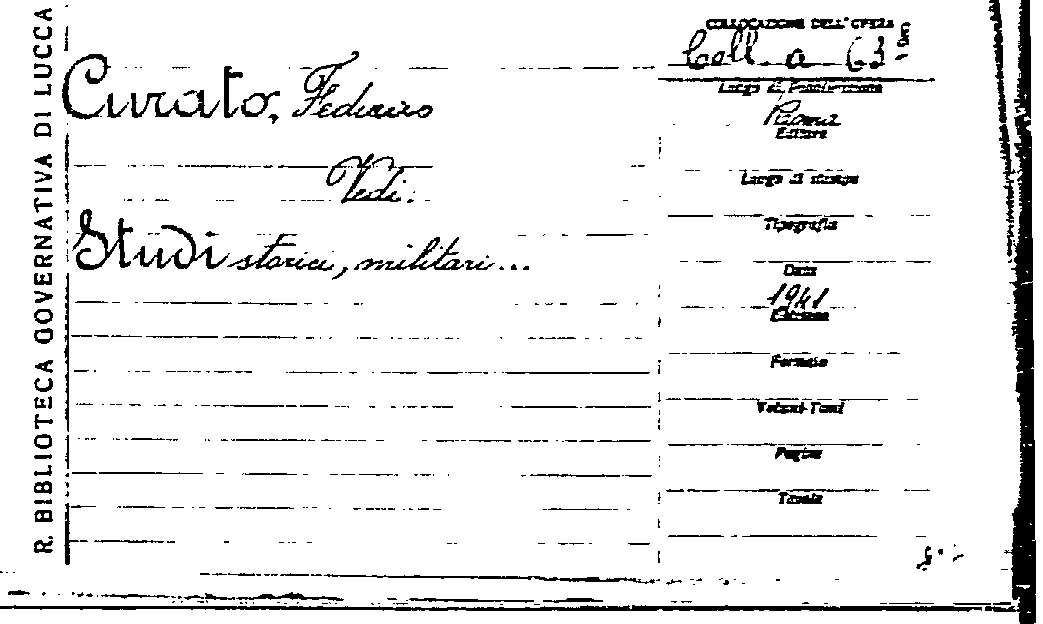 R. BIBLIOTECA GOVERNATIVA DI LUCCA
Curato, Federico
Vedi:
Studi storici, militari...
COLLOCAZIONE DELL'OPERA
Coll. a 63
Luogo di Pubblicazione
Roma
Editore
Luogo di stampa
Tipografia
Data
1941
Edizione
Formato
Volumi-Tomi
Pagine
Tavole